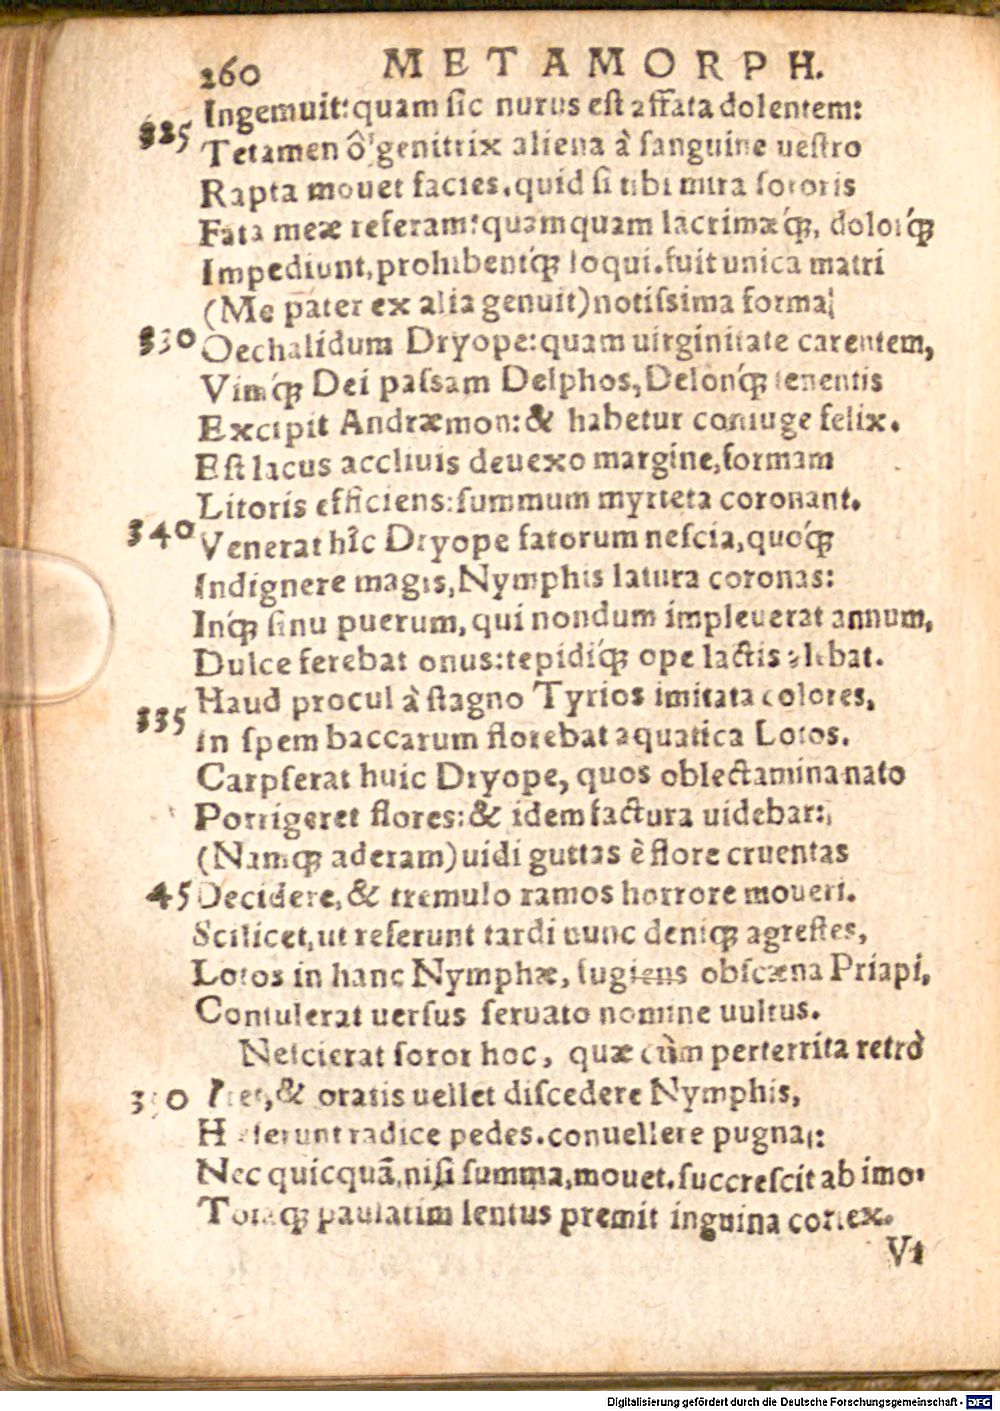 260 METAMORPH.
Ingemuit: quam sic nurus est affata dolentem:
325 Te tamen ô genitrix aliena à sanguine uestro
Rapta mouet facies. quid si tibi mira sororis
Fata meæ referam: quamquam lacrimæq́;, dolorq́;
Impediunt, prohibentq́; loqui. fuit unica matri
(Me pater ex alia genuit) notissima forma
330 Oechalidum Dryope: quam uirginitate carentem,
Vimq́; Dei passam Delphos, Delonq́; tenentis
Excipit Andræmon: & habetur coniuge felix.
Est lacus accliuis deuexo margine, formam
Litoris efficiens: summum myrteta coronant.
340 Venerat hîc Dryope fatorum nescia, quoq́;
Indignere magis, Nymphis latura coronas:
Inq́; sinu puerum, qui nondum impleuerat annum,
Dulce ferebat onus: tepidiq́; ope lactis alebat.
Haud procul à stagno Tyrios imitata colores,
335 In spem baccarum florebat aquatica Lotos.
Carpserat huic Dryope, quos oblectamina nato
Porrigeret flores: & idem factura uidebar:
(Namq; aderam) uidi guttas è flore cruentas
45 Decidere, & tremulo ramos horrore moueri.
Scilicet, ut referunt tardi nunc deniq; agrestes,
Lotos in hanc Nymphæ, fugiens obscæna Priapi,
Contulerat uersus seruato nomine uultus.
Nescierat soror hoc, quæ cùm perterrita retrò
350 Iret, & oratis uellet discedere Nymphis,
Hæserunt radice pedes. conuellere pugnat:
Nec quicquā, nisi summa, mouet. succrescit ab imo,
Totaq; paulatim lentus premit inguina cortex.
Vt
Digitalisierung gefördert durch die Deutsche Forschungsgemeinschaft - DFG